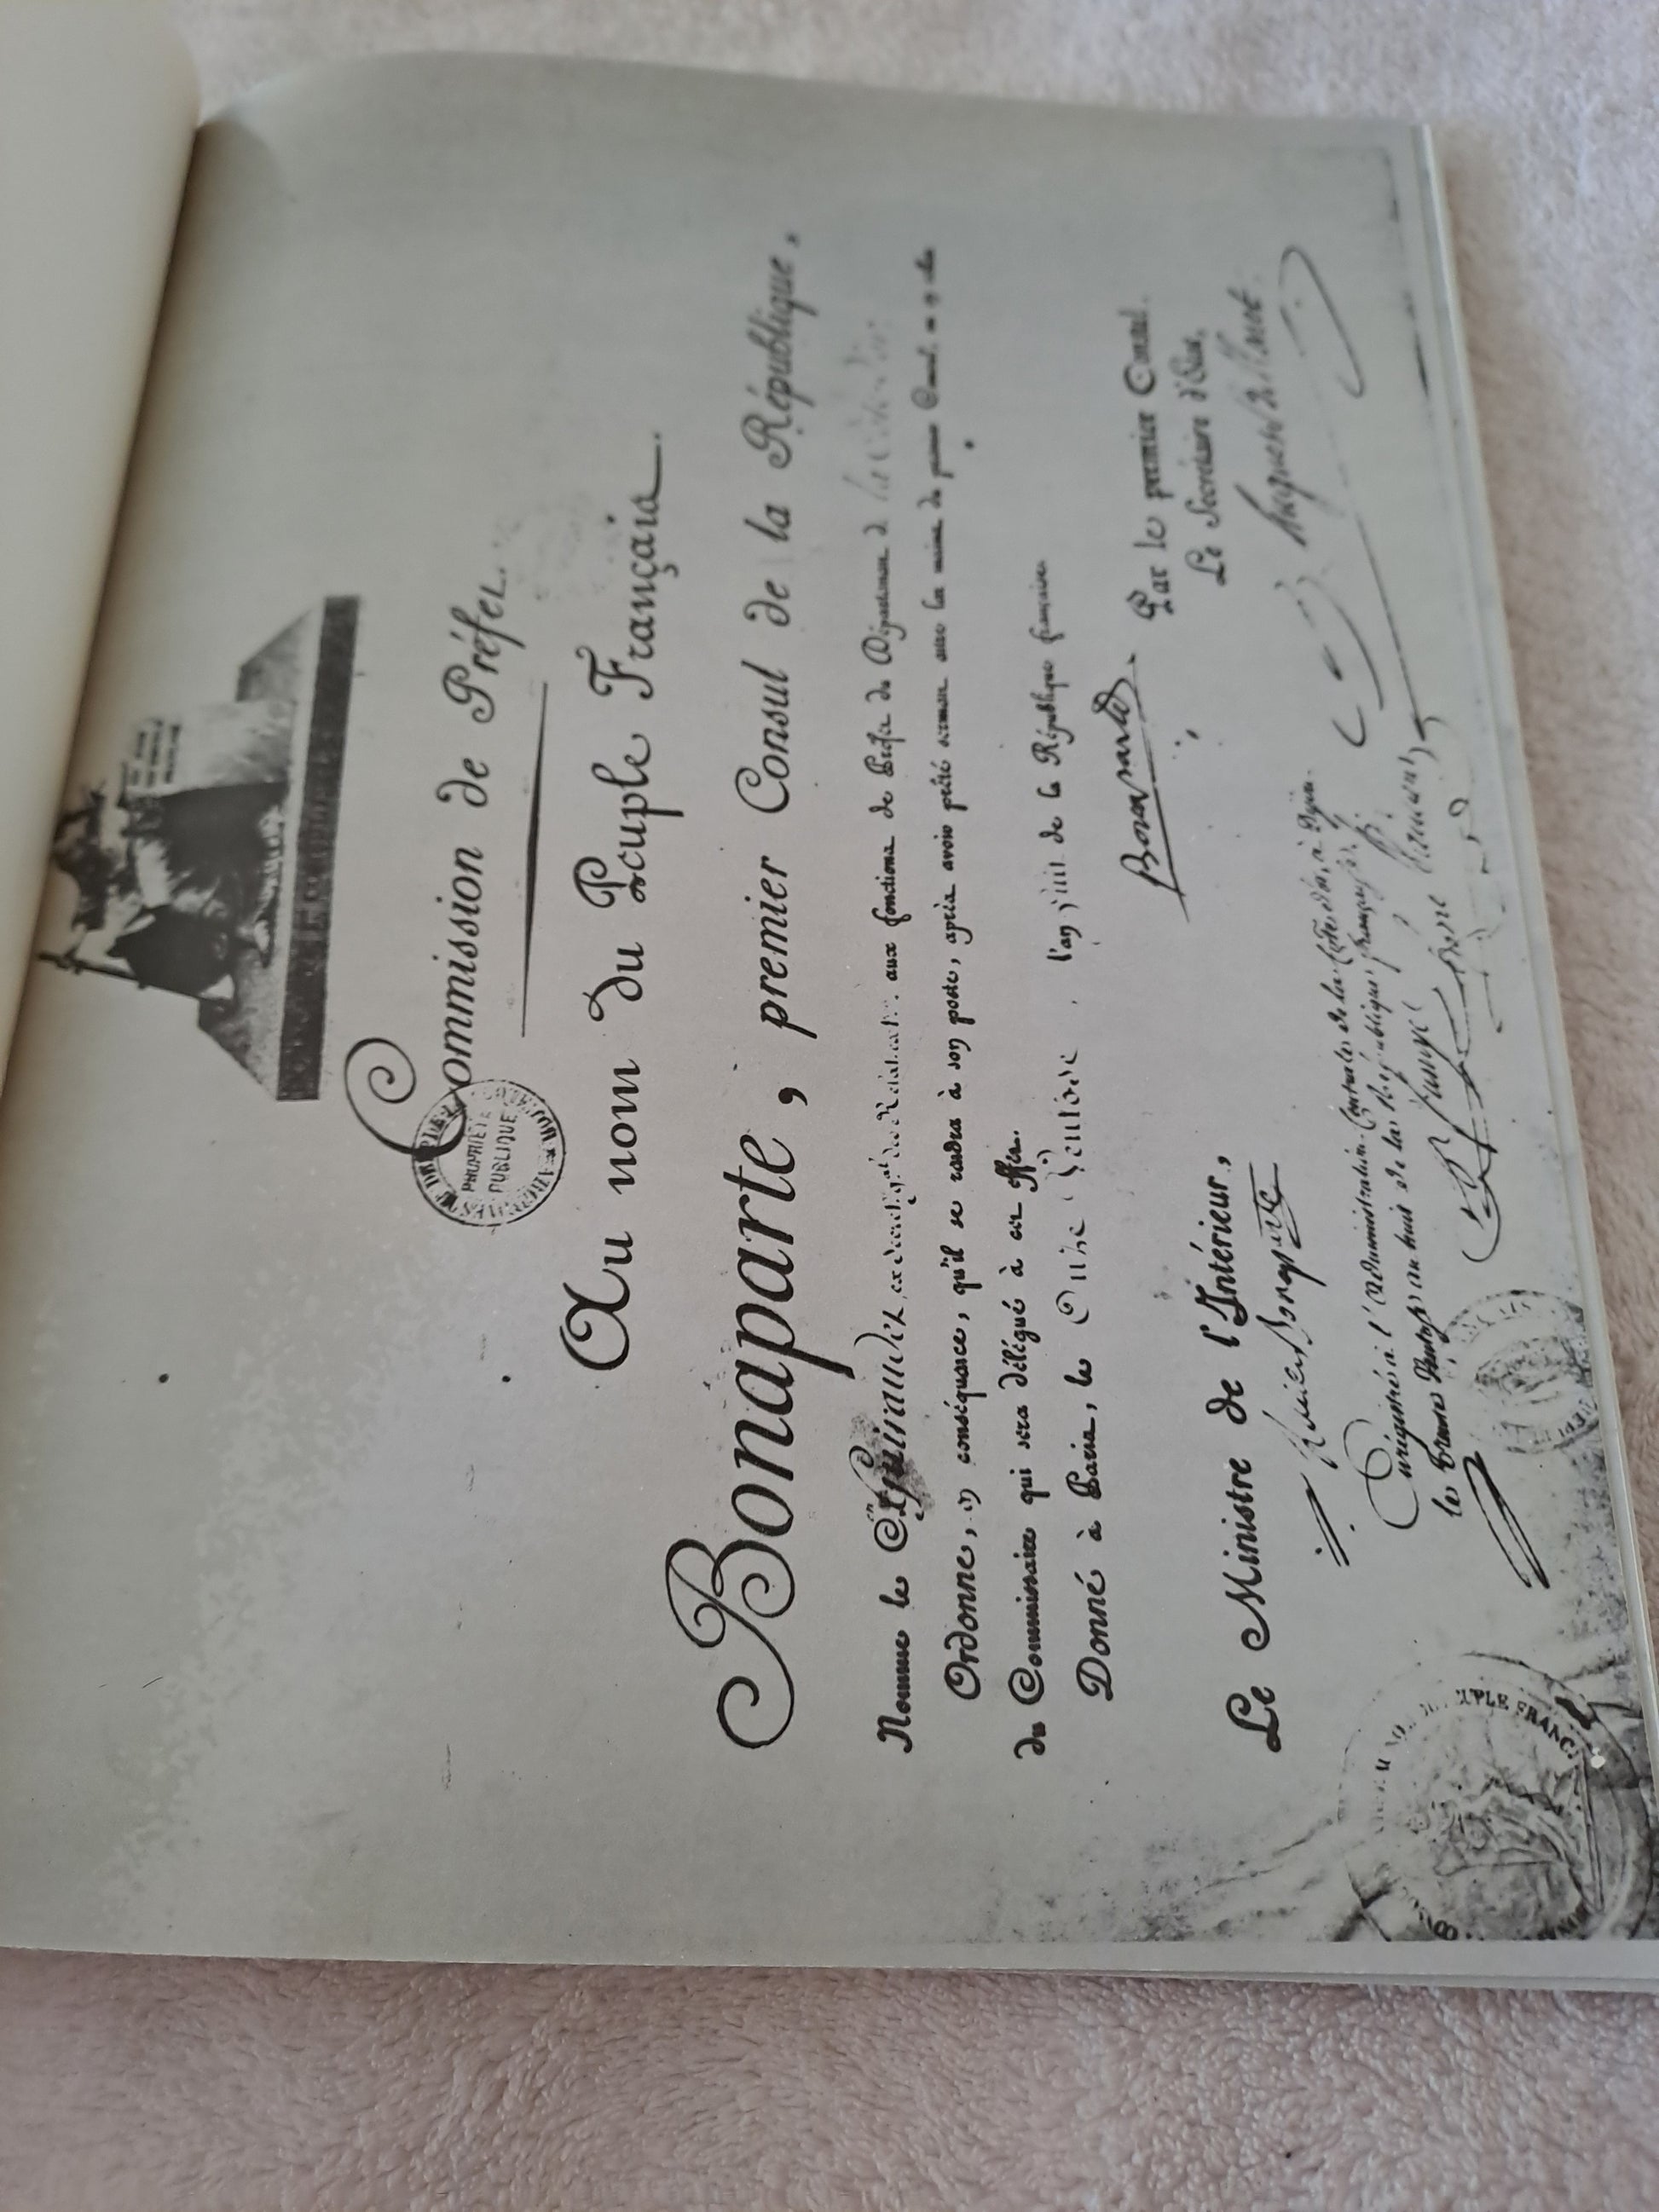 Commission de Préfet.
ARCHIVES
PROPRIÉTÉ
PUBLIQUE
Au nom du Peuple Français.
Bonaparte, premier Consul de la République,
Nomme le Cen Guiraudet, aux fonctions de Préfet du Département de la Côte d'or.
Ordonne, en conséquence, qu'il se rendra à son poste, après avoir prêté serment entre les mains du premier Consul, ou
du Commissaire qui sera délégué à cet effet.
Donné à Paris, le Onze Ventose, l'an viii. de la République française.
Bonaparte
Par le premier Consul.
Le Secrétaire d'État,
Hugues B. Maret
Le Ministre de l'Intérieur,
Lucien Bonaparte
Enrégistré à l'administration Centrale de la Côte d'or, à Dijon
le trente Ventose an huit de la république française
AU NOM DU PEUPLE FRANÇ